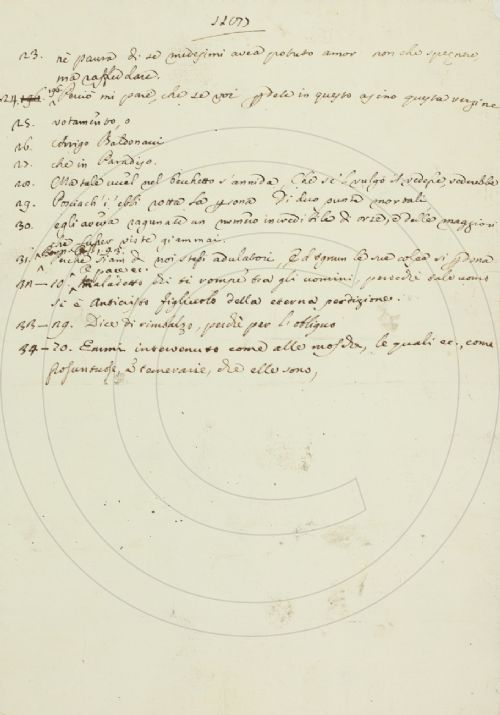 23. nè paura di se medesimi avea potuto amor non che spegnere
ma raffreddare.
24. Perciò mi pare, che se voi in questo asino questa vergine
25. votamento, o
26. Arrigo Baldonasi
27. che in Paradiso.
28. Ma tale uccel nel becchetto s'annida Che se 'l vulgo il vedesse, vederebbe
29. Posciach' i' ebbi rotta la persona Di due punte mortali
30. egli aveva ragunato un numero incredibile di orze, e delle maggior
che fusser viste giammai.
31. siam di noi stessi adulatori, Ed ognun le sue cose si perdona
E pare ec.
32 — 10. Maladetto chi ti rompe tra gli uomini, perocchè tale uomo
si è Anticristo figliuolo della eterna perdizione.
33 — 29. Dice di rimbalzo, perchè per l'obliquo
34 — 70. Emmi intervenuto come alle mosche, le quali ec. come
prosuntuose, e temerarie, che elle sono,